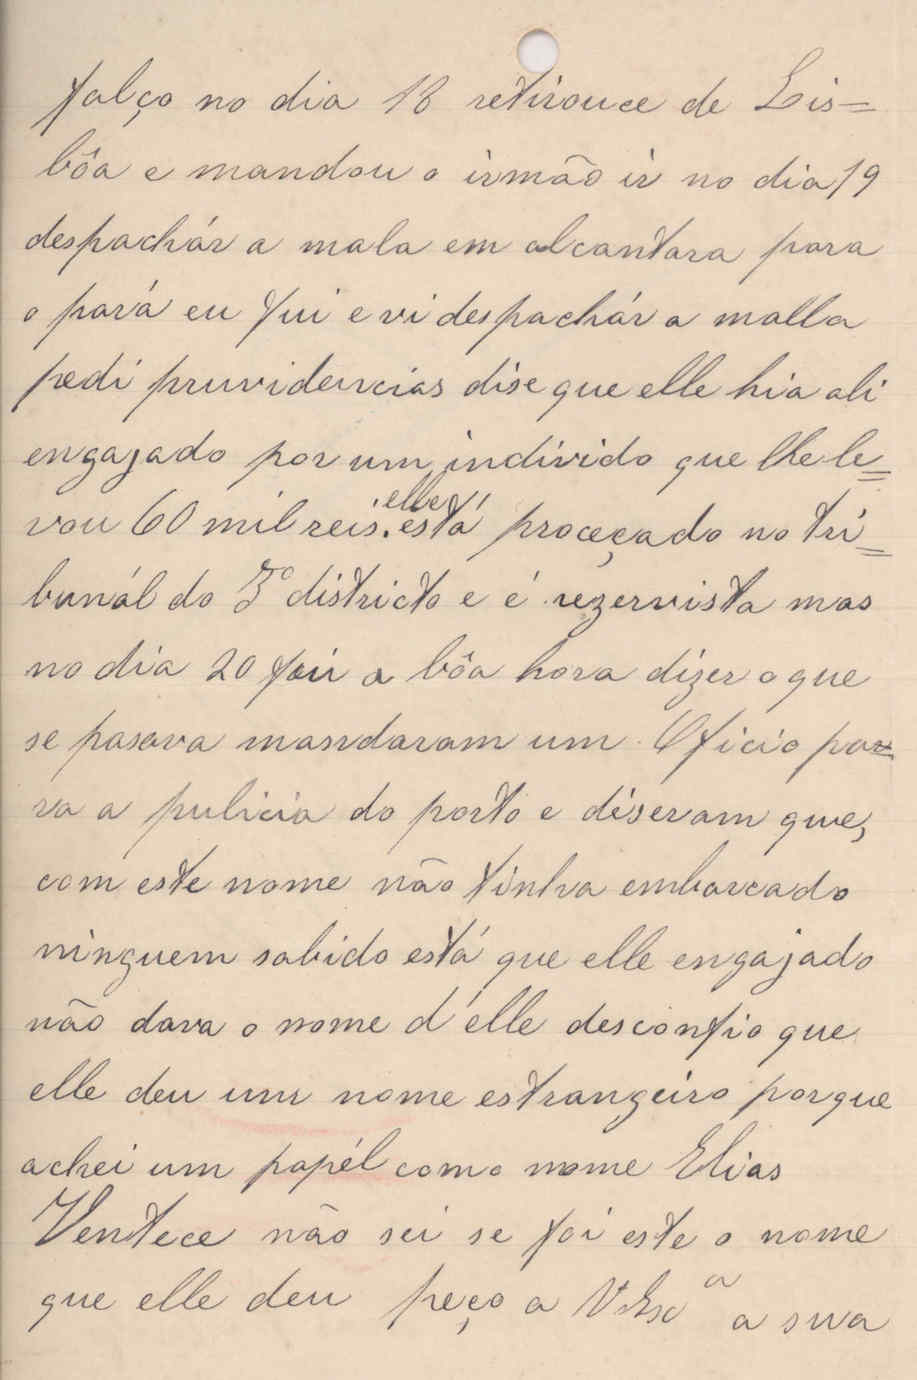 falço no dia 18 retirouce de Lis=
bôa e mandou o irmão ir no dia 19
despachár a mala em alcantara para
o pará eu fui e vi despachár a malla
pedi pruvidencias dise que elle hia ali
engajado por um individo que lhe le=
vou 60 mil reis. elle está proceçado no tri=
bunál do 3º districto e é rezervista mas
no dia 20 foi a bôa hora dizer o que
se pasava mandaram um Oficio pa=
ra a pulicia do porto e diseram que,
com este nome não tinha embarcado
ninguem sabido está que elle engajado
não dava o nome d'elle desconfio que
elle deu um nome estrangeiro porque
achei um papél como nome Elias
Ventece não sei se foi este o nome
que elle deu peço a V. Excª a sua